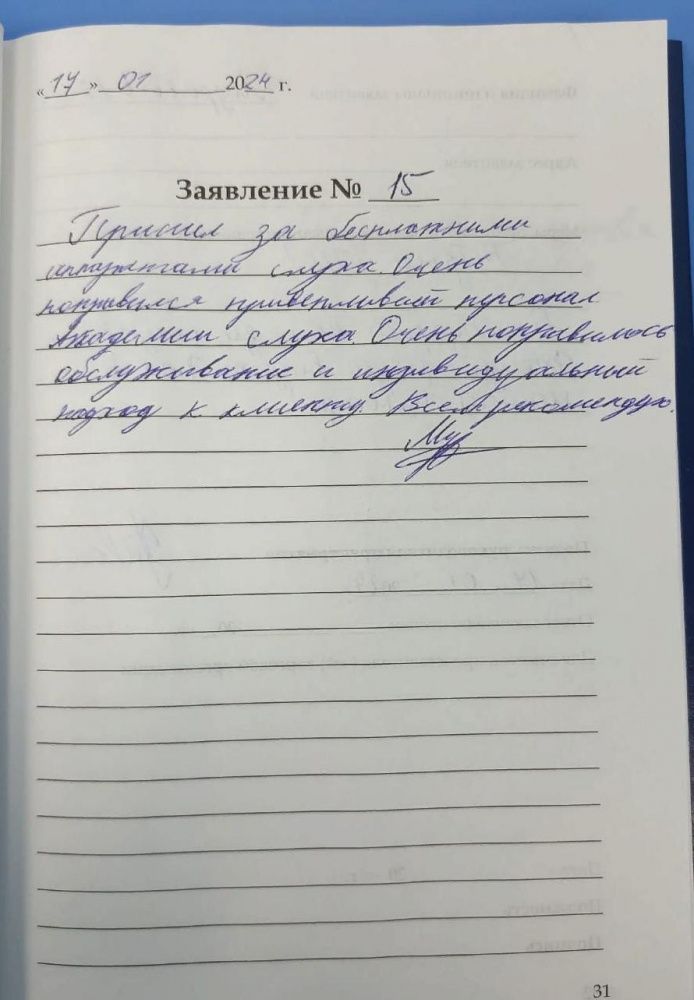 «17» 01 2024 г.
Заявление № 15
Пришел за бесплатными
аппаратами слуха. Очень
понравился приветливый персонал
Академии слуха. Очень понравилось
обслуживание и индивидуальный
подход к клиенту. Всем рекомендую.
31